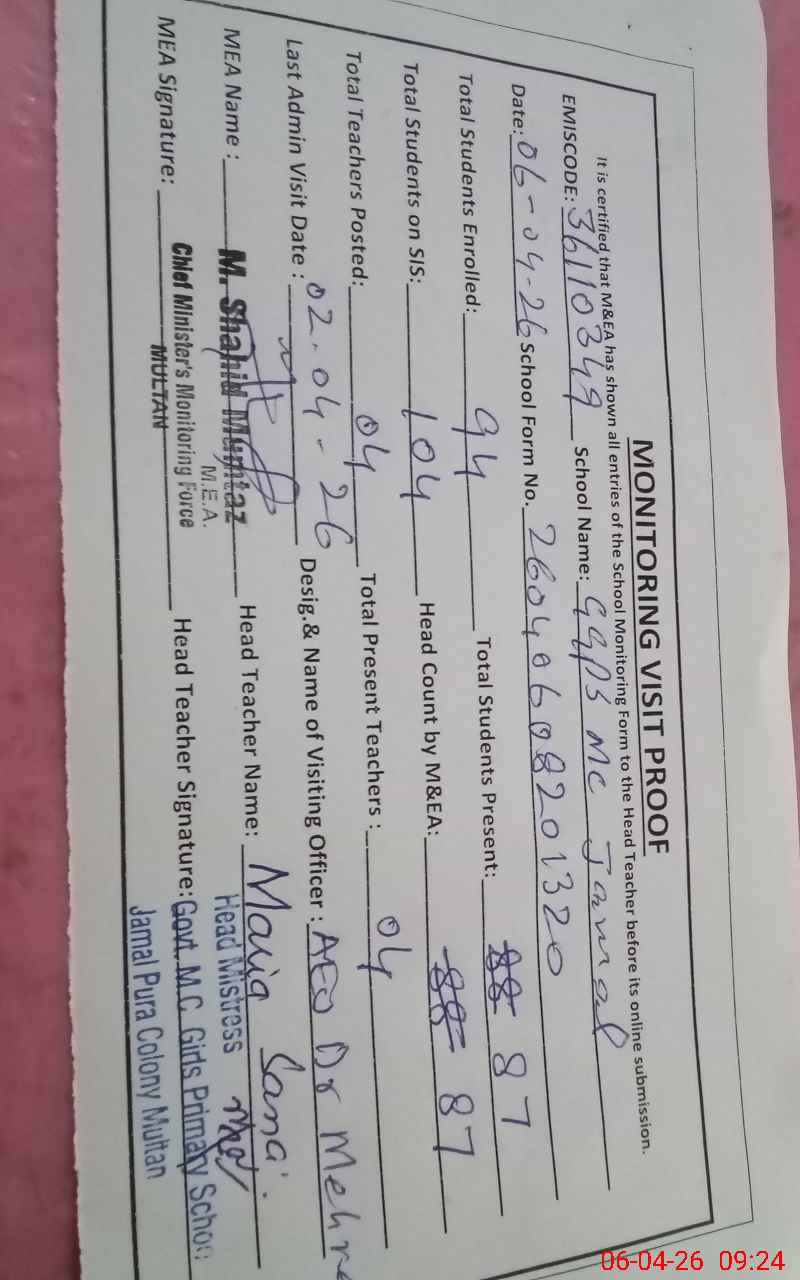 MONITORING VISIT PROOF
It is certified that M&EA has shown all entries of the School Monitoring Form to the Head Teacher before its online submission.
EMISCODE: 36110349 School Name: GGPS MC Jamal
Date: 06-04-26 School Form No. 26040608201320
Total Students Enrolled: 94 Total Students Present: 88 87
Total Students on SIS: 104 Head Count by M&EA: 88 87
Total Teachers Posted: 04 Total Present Teachers : 04
Last Admin Visit Date : 02.04-26 Desig.& Name of Visiting Officer : AEO Dr Mehr
MEA Name : M. Shahid Mumtaz Head Teacher Name: Maria Sana
M.E.A. Head Mistress
MEA Signature: Chief Minister's Monitoring Force Head Teacher Signature: Govt. M.C. Girls Primary School
MULTAN Jamal Pura Colony Multan
06-04-26 09:24